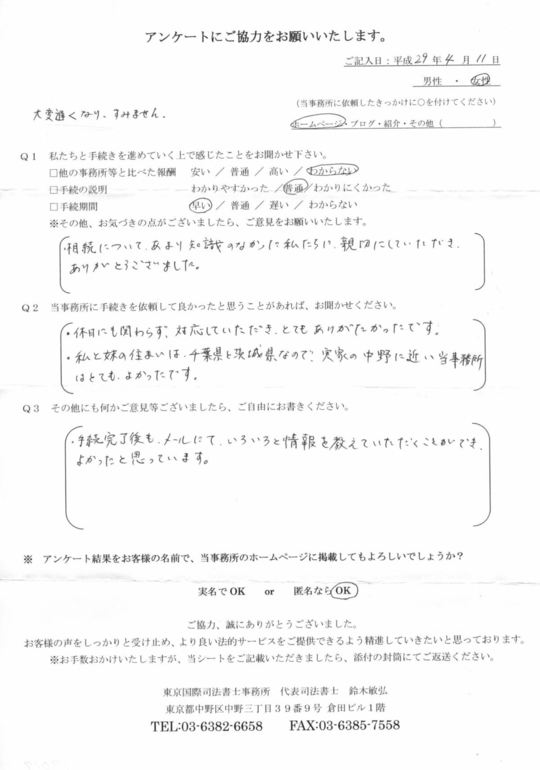 アンケートにご協力をお願いいたします。
ご記入日：平成29年4月11日
男性 ・ 女性
（当事務所に依頼したきっかけに○を付けてください）
大変遅くなり、すみません。
ホームページ・ブログ・紹介・その他（　　　　　）
Q1 私たちと手続きを進めていく上で感じたことをお聞かせ下さい。
□他の事務所等と比べた報酬　安い ／ 普通 ／ 高い ／ わからない
□手続の説明　わかりやすかった ／ 普通 ／ わかりにくかった
□手続期間　早い ／ 普通 ／ 遅い ／ わからない
※その他、お気づきの点がございましたら、ご意見をお願いいたします。
・相続について、あまり知識のなかった私たちに、親切にしていただき、
ありがとうございました。
Q2 当事務所に手続きを依頼して良かったと思うことがあれば、お聞かせください。
・休日にも関わらず、対応していただき、とてもありがたかったです。
・私と妹の住まいは、千葉県と茨城県なので、実家の中野に近い当事務所
はとても、よかったです。
Q3 その他にも何かご意見等ございましたら、ご自由にお書きください。
・手続完了後も、メールにて、いろいろと情報を教えていただくことができ、
よかったと思っています。
※ アンケート結果をお客様の名前で、当事務所のホームページに掲載してもよろしいでしょうか？
実名でOK　or　匿名ならOK
ご協力、誠にありがとうございました。
お客様の声をしっかりと受け止め、より良い法的サービスをご提供できるよう精進していきたいと思っております。
※お手数おかけいたしますが、当シートをご記載いただきましたら、添付の封筒にてご返送ください。
東京国際司法書士事務所　代表司法書士　鈴木敏弘
東京都中野区中野三丁目３９番９号 倉田ビル１階
TEL:03-6382-6658　FAX:03-6385-7558